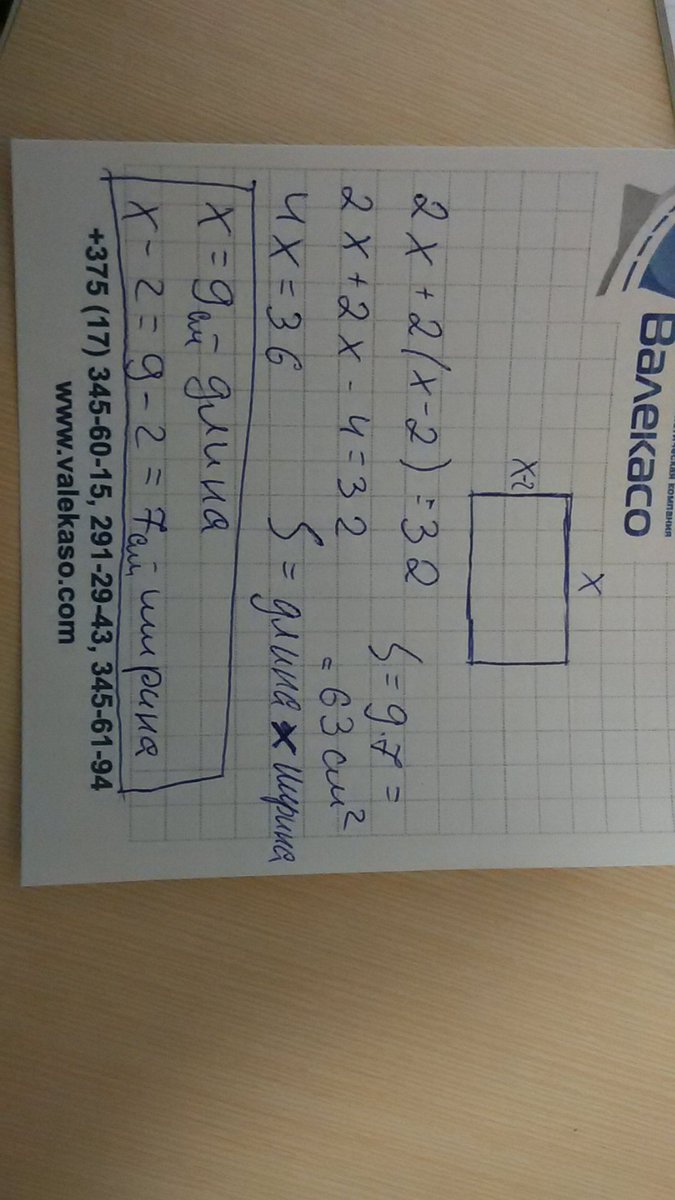 ическая компания
Валекасо
x
x-2
2x + 2(x-2) = 32
2x + 2x - 4 = 32
4x = 36
S = 9·7 =
= 63 см²
S = длина x ширина
x = 9 см - длина
x - 2 = 9 - 2 = 7 см - ширина
+375 (17) 345-60-15, 291-29-43, 345-61-94
www.valekaso.com